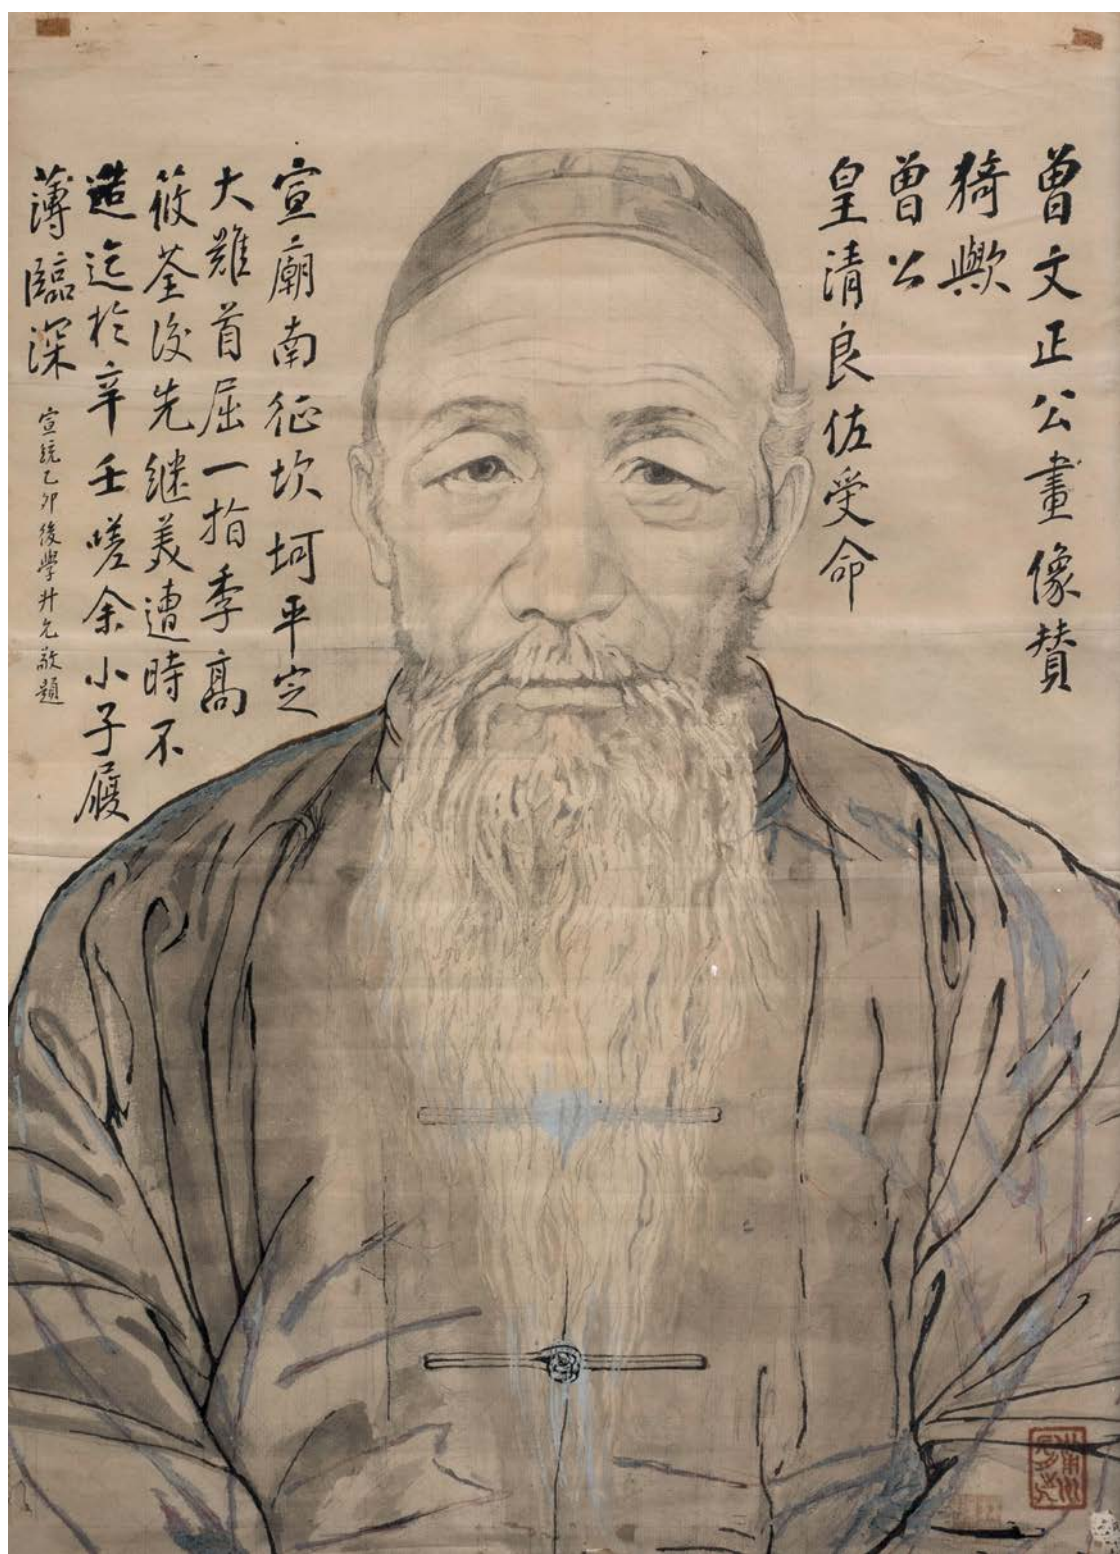 曾文正公畫像賛
猗歟
曾公
皇清良佐受命
宣廟南征坎坷平定
大難首屈一指季高
筱荃後先继美遭時不
造迄於辛壬嗟余小子履
薄臨深
宣統乙卯後學升允敬題